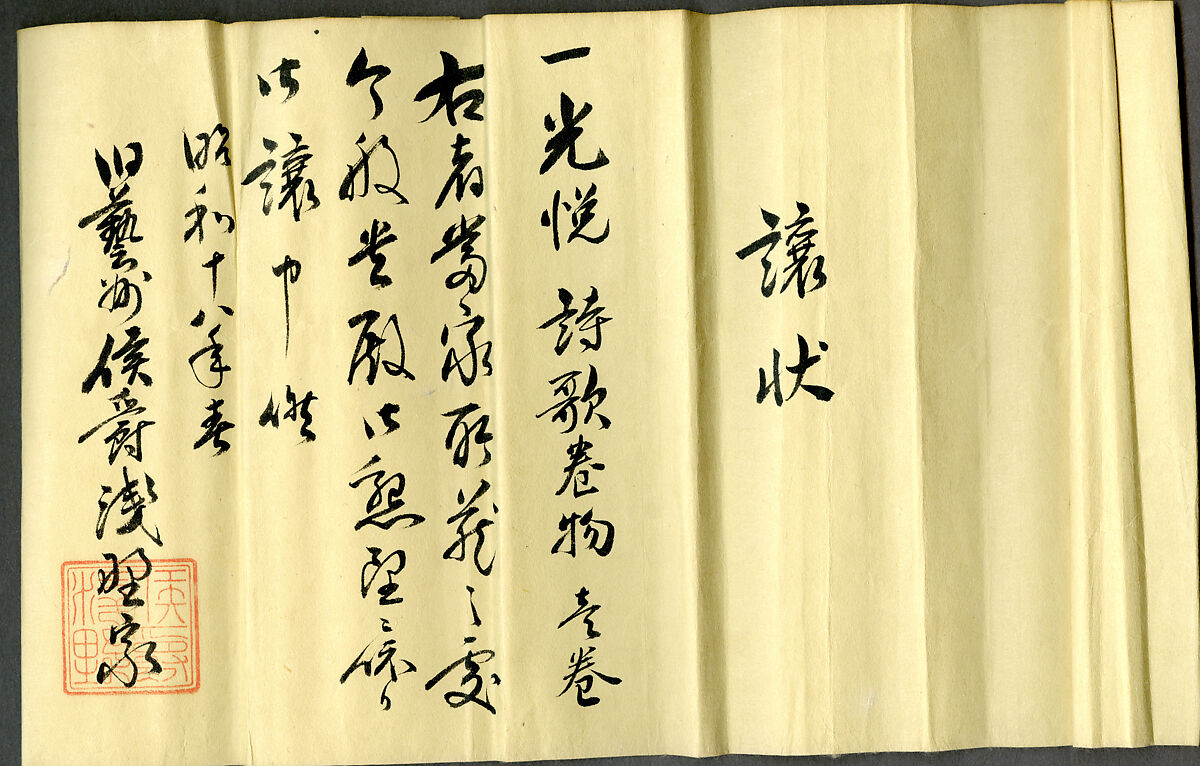 讓状
一光悦 詩歌巻物 壱巻
右者當家所蔵之處
今般貴殿御懇望ニ依り
御譲申候
昭和十八年春
旧藝州侯爵浅野家